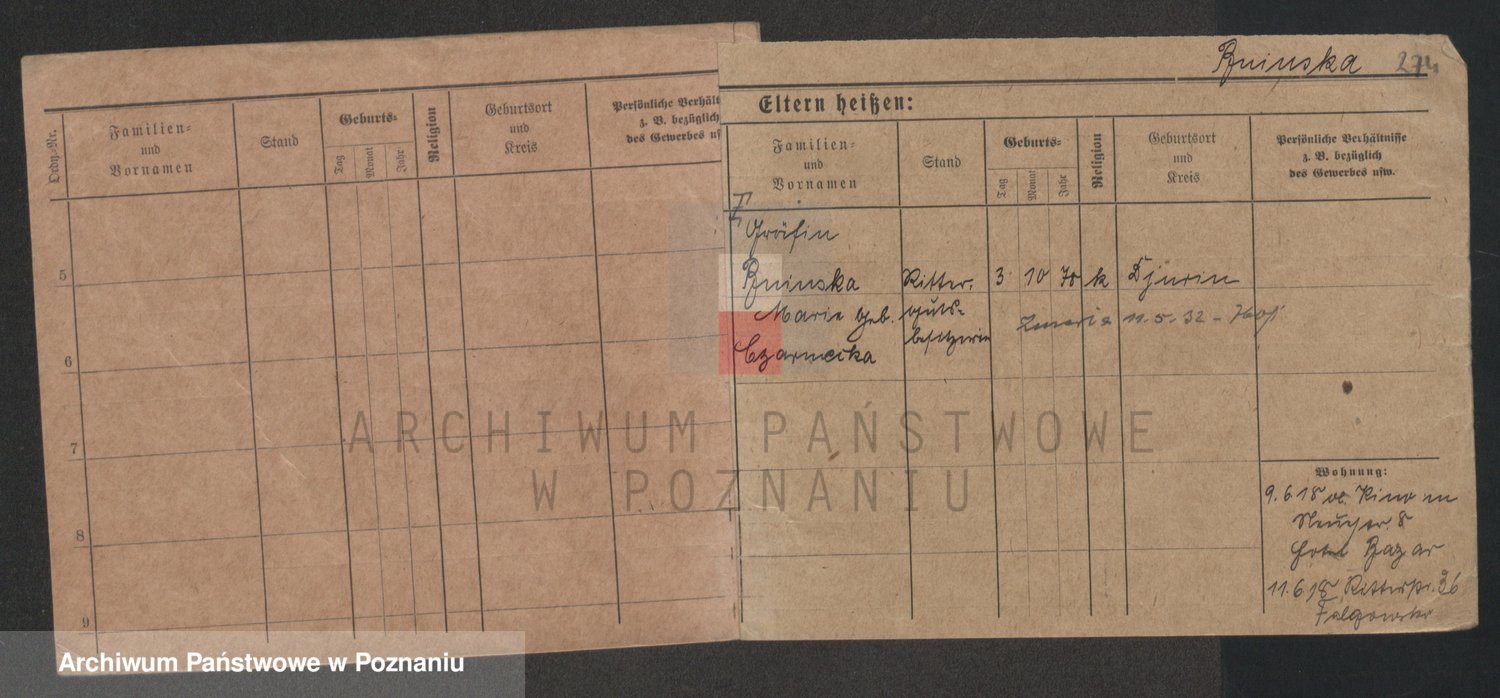 Ordn.-Nr.
Familien-
und
Vornamen
Stand
Geburts-
Tag
Monat
Jahr
Religion
Geburtsort
und
Kreis
Persönliche Verhält
z. B. bezüglich
des Gewerbes us
5
6
7
8
9
Bninska 274
Eltern heißen:
Familien-
und
Vornamen
Stand
Geburts-
Tag
Monat
Jahr
Religion
Geburtsort
und
Kreis
Persönliche Verhältnisse
z. B. bezüglich
des Gewerbes usw.
Gräfin
Bninska Ritter- 3 10 70 k Djurin
Marie geb. guts-
besitzerin
Czarnecka
11.5.32
Wohnung:
9.6.18
Hotel Bazar
11.6.18 Ritterstr. 36
ARCHIWUM PAŃSTWOWE
W POZNANIU
Archiwum Państwowe w Poznaniu